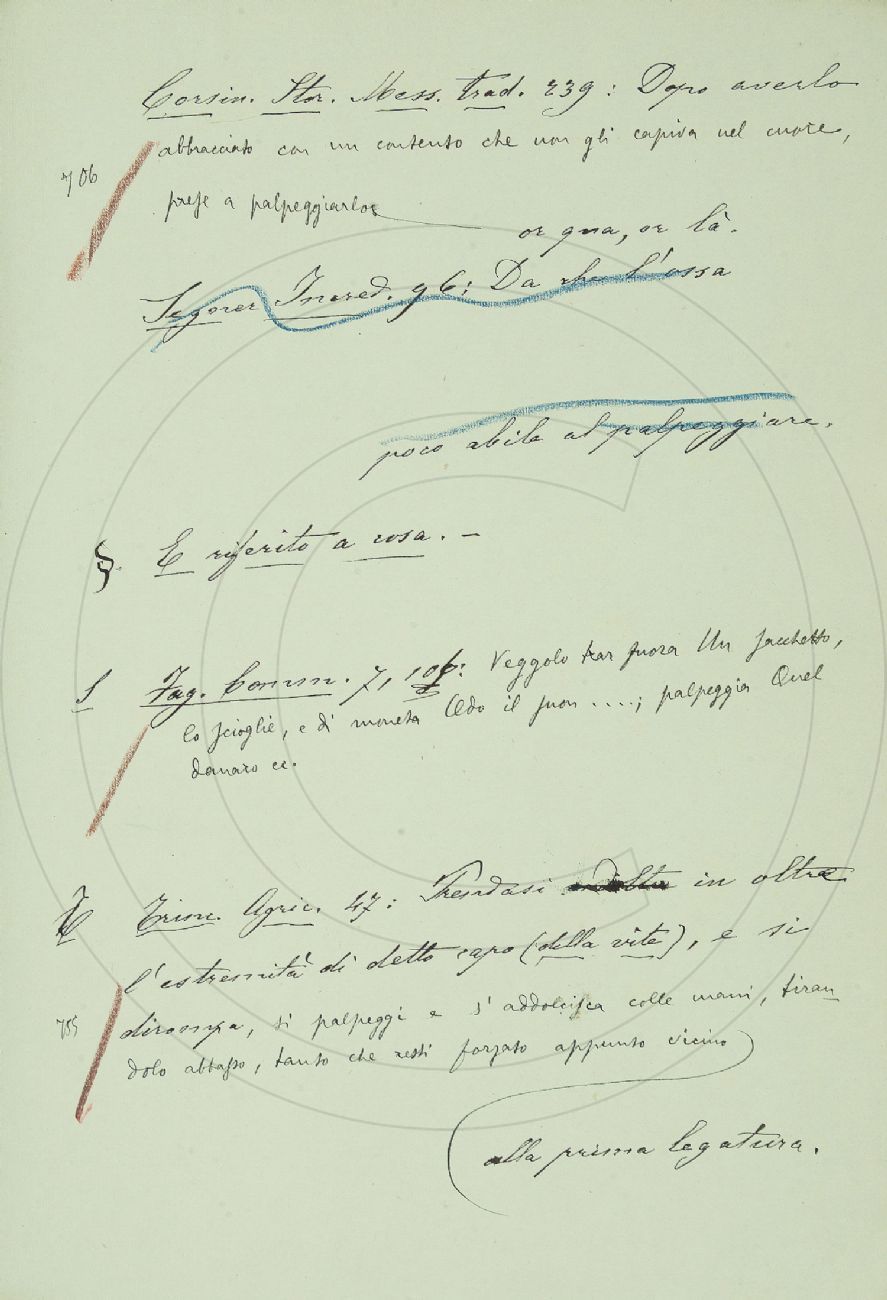 Corsin. Stor. Mess. trad. 239: Dopo averlo
abbracciato con un contento che non gli capiva nel cuore,
706
prese a palpeggiarlo
or qua, or là.
Segner. Incred. 96: Da che l'ossa
poco abile al palpeggiare.
§. E riferito a cosa. –
S Fag. Comm. 7, 106: Veggolo trar fuora Un sacchetto,
lo scioglie, e di moneta Odo il suon ....; palpeggia Quel
danaro ec.
Trinc. Agric. 47: Prendasi in oltre
l'estremità di detto capo (della vite), e si
755
dirompa, si palpeggi e s'addolcisca colle mani, tiran
dolo abbasso, tanto che resti forzato appunto vicino
alla prima legatura.